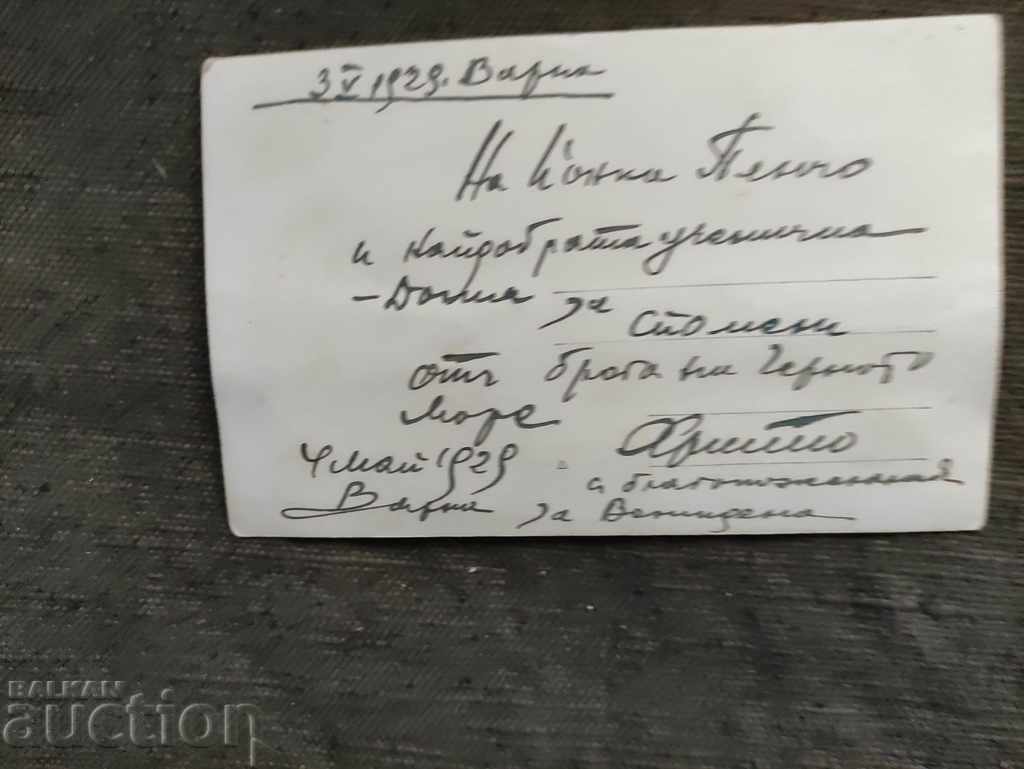 3 V 1929. Варна
На Йонка Пенчо
и найдобрата ученичка
- за
спомени
отъ брега на Черното
Море
Христо
4 Май 1929
с благопожелания
Варна за Великдена
BALKAN
auction